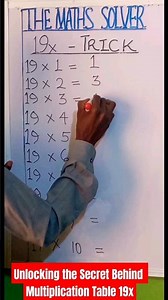 THE MATHS SOLVER
19x - TRICK
19 x 1 = 1
19 x 2 = 3
19 x 3 =
19 x 4
19 x 5
19 x 6
19
=
x 10 =
Unlocking the Secret Behind
Multiplication Table 19x